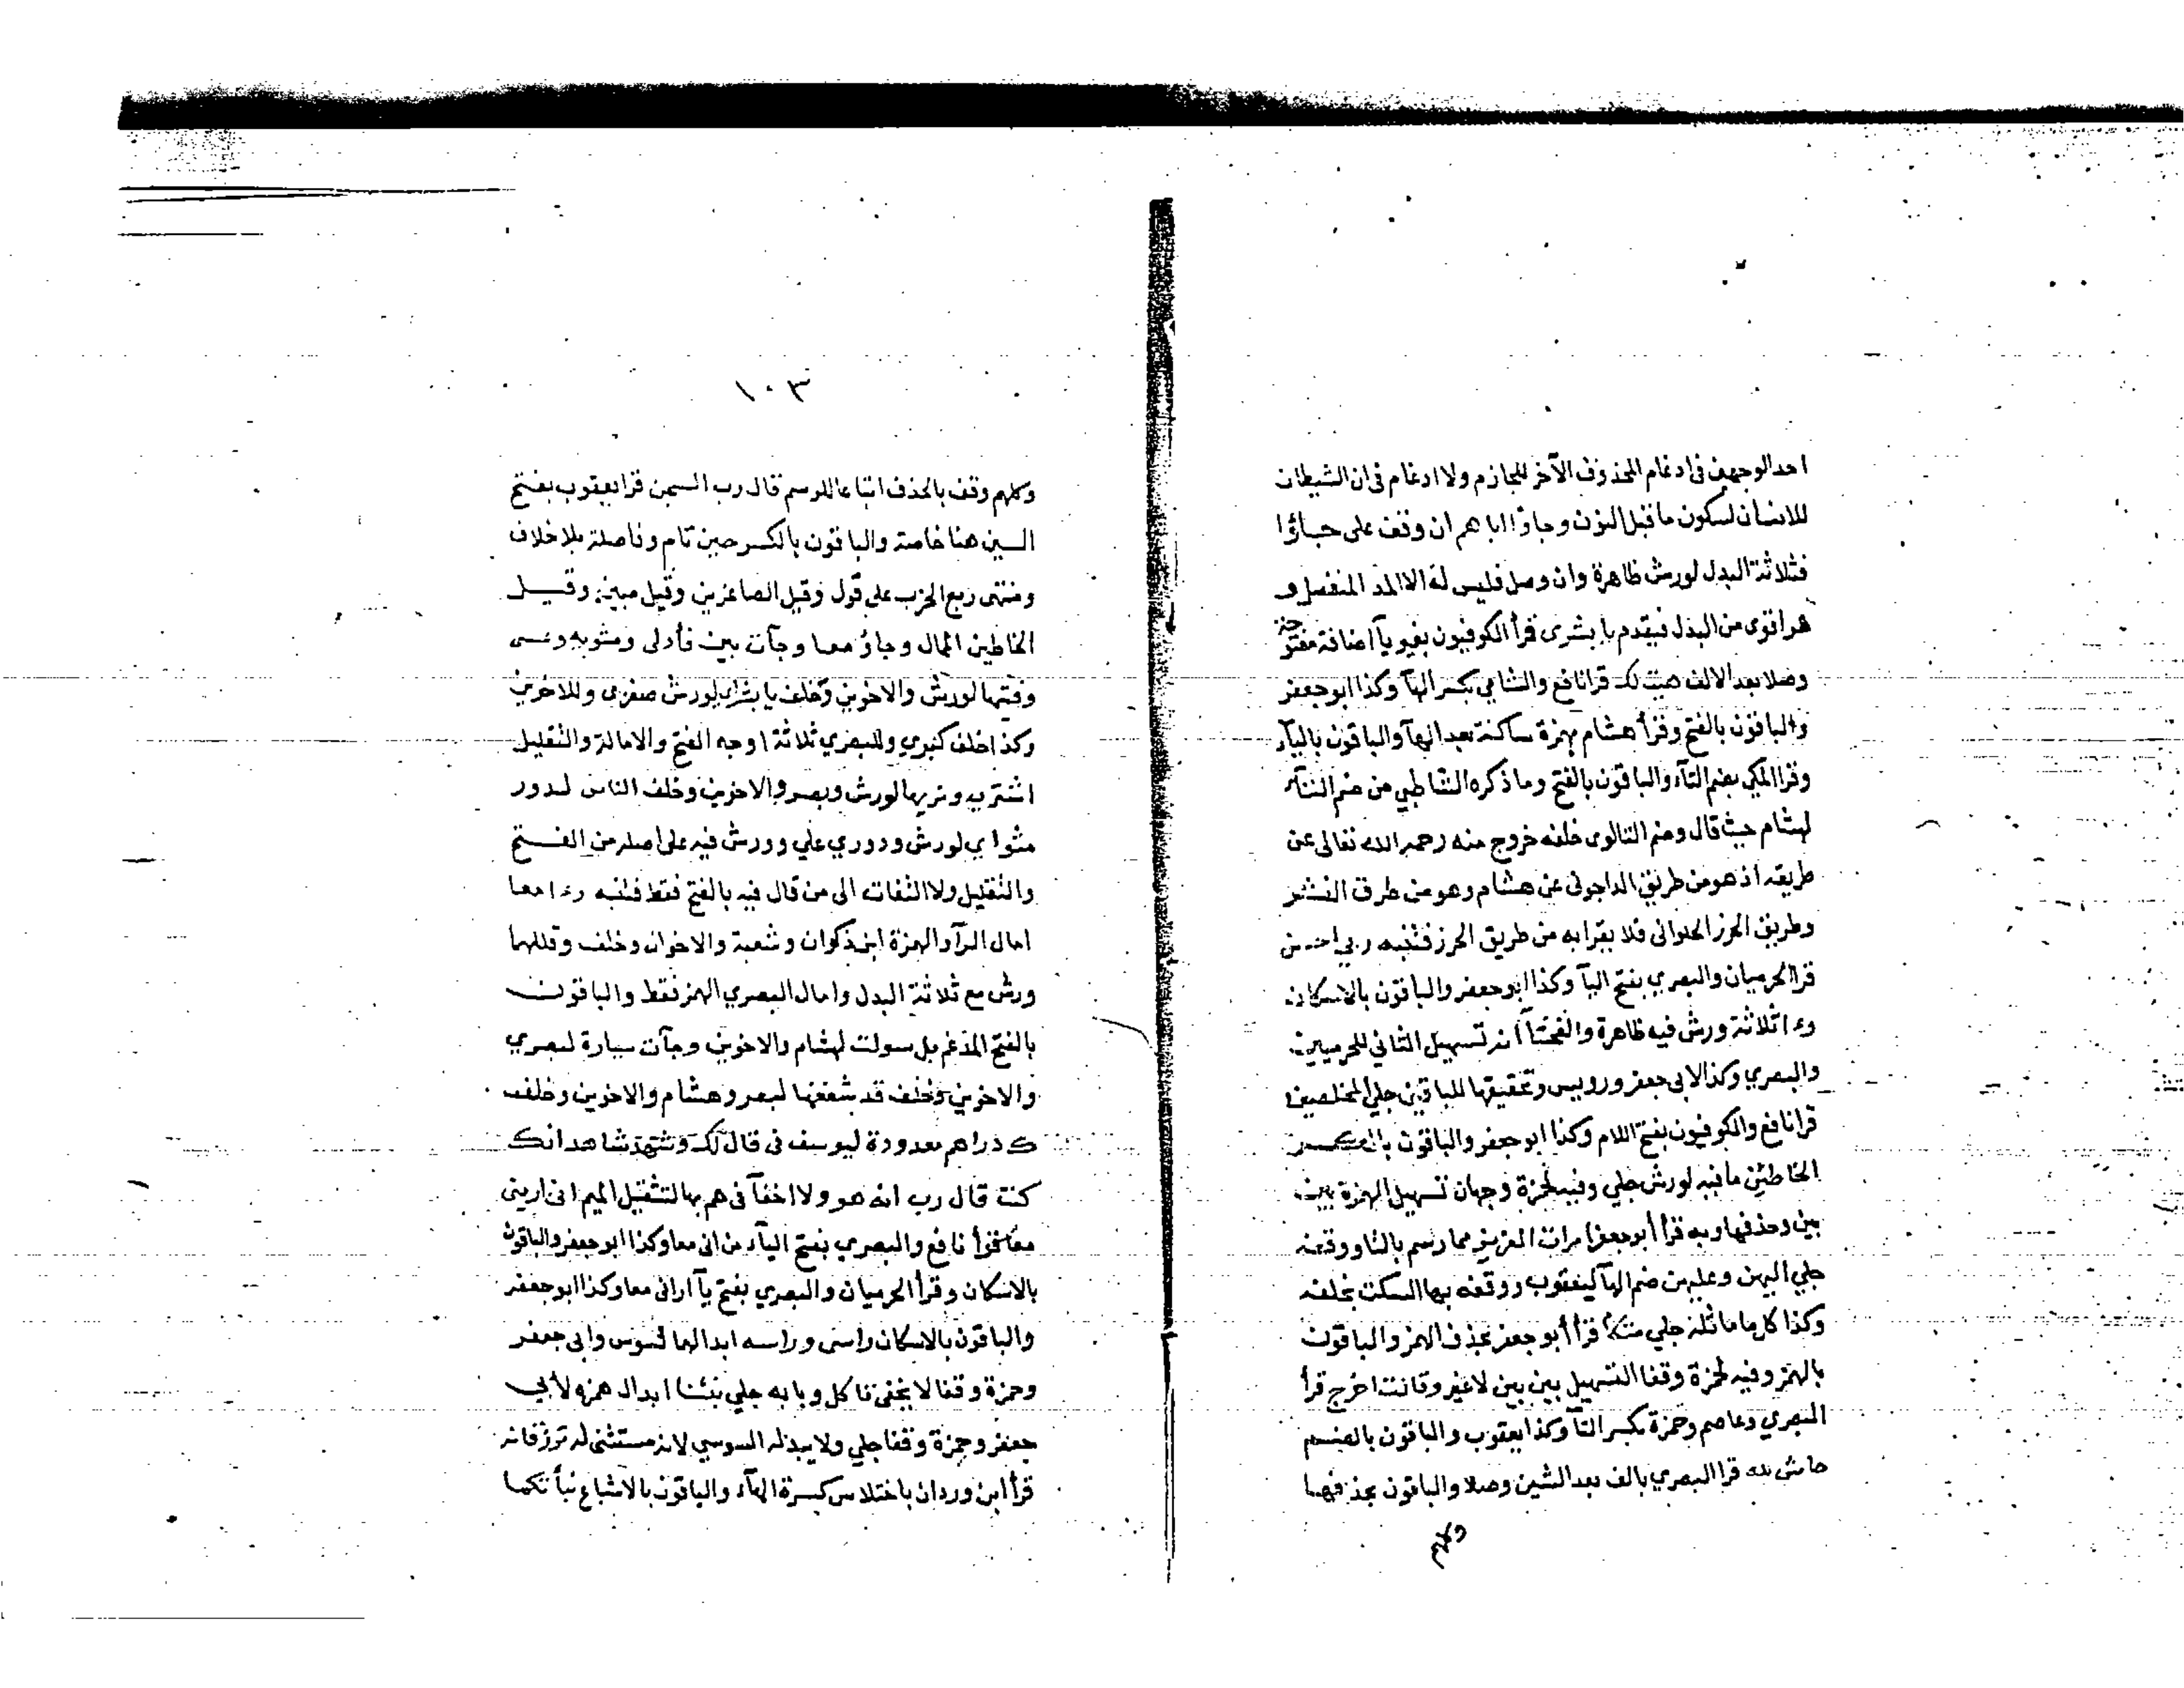 احد الوجهين في ادغام المحذوف الآخر للجازم ولا ادغام في ان الشيطان
للانسان لسكون ما قبل النون وجاؤا اباهم ان وقف على جاؤا
فثلاثة البدل لورش ظاهرة وان وصل فليس له الا المد المنفصل و
هو اقوى من البدل فيقدم يا بشرى قرأ الكوفيون بغير يآ اضافة مفتوحة
وصلا بعد الالف هيت لك قرا نافع والشامي بكسر الهآ وكذا ابو جعفر
والباقون بالفتح وقرأ هشام بهمزة ساكنة بعد الهآ والباقون باليآء
وقرا المكي بضم التآء والباقون بالفتح وما ذكره الشاطبي من ضم التآء
لهشام حيث قال وضم التا لوى خلفه خروج منه رحمه الله تعالى عن
طريقه اذ هو من طريق الداجوني عن هشام وهو من طرق النشر
وطريق الحرز الحلواني فلا يقرا به من طريق الحرز فتنبه ربي احسن
قرا الحرميان والبصري بفتح اليآ وكذا ابو جعفر والباقون بالاسكان
رءا ثلاثة ورش فيه ظاهرة والفحشآ انه تسهيل الثاني للحرميين
والبصري وكذا لابي جعفر ورويس وتحقيقها للباقين جلي المخلصين
قرا نافع والكوفيون بفتح اللام وكذا ابو جعفر والباقون بالكسر
الخاطئين ما فيه لورش جلي وفيه لحمزة وجهان تسهيل الهمزة بين
بين وحذفها وبه قرأ أبو جعفر امرات العزيز مما رسم بالتا ووقفه
جلي اليهن وعليهن ضم الهآ ليعقوب ووقفه بها السكت بخلفه
وكذا كل ما ماثله جلي متكأ قرأ أبو جعفر بحذف الهمز والباقون
بالهمز وفيه لحمزة وقفا التسهيل بين بين لا غير وقالت اخرج قرأ
البصري وعاصم وحمزة بكسر التآ وكذا يعقوب والباقون بالضم
حاش لله قرا البصري بالف بعد الشين وصلا والباقون بحذفها
وكلهم
١٠٣
وكلهم وقف بالحذف اتباعا للرسم قال رب السجن قرا يعقوب بفتح
السين هنا خاصة والباقون بالكسر حين تام وفاصلة بلا خلاف
ومنتهى ربع الحزب على قول وقيل الصاغرين وقيل مبين وقيل
الخاطئين الممال وجاؤ معا وجآت بين فأدلى ومثويه وعسى
وفتيها لورش والاخوين وخلف يا بشراي لورش صغرى وللاخوين
وكذا خلف كبري وللبصري ثلاثة اوجه الفتح والامالة والتقليل
اشتريه ونريها لورش وبصر والاخوين وخلف الناس لدور
مثواي لورش ودوري علي وورش فيه على اصله من الفتح
والتقليل ولا التفات الى من قال فيه بالفتح فقط فتنبه رءا معا
امال الرآ والهمزة ابن ذكوان وشعبة والاخوان وخلف وقللهما
ورش مع ثلاثة البدل وامال البصري الهمز فقط والباقون
بالفتح المدغم بل سولت لهشام والاخوين وجآت سيارة لبصري
والاخوين وخلف قد شغفها لبصر وهشام والاخوين وخلف
ك دراهم معدودة ليوسف في قال لك وشهد شاهد انك
كنت قال رب انه هو ولا اخفآ في هم بها لتثقيل الميم اني اريني
معا قرأ نافع والبصري بفتح اليآء من اني معا وكذا ابو جعفر والباقون
بالاسكان وقرأ الحرميان والبصري بفتح يآ اراني معا وكذا ابو جعفر
والباقون بالاسكان راسي وراسه ابدالهما لسوس وابي جعفر
وحمزة وقفا لا يخفى تاكل وبابه جلي نبئنا ابدال همزه لأبي
جعفر وحمزة وقفا جلي ولا يبدله السوسي لانه مستثنى له ترزقانه
قرأ ابن وردان باختلاس كسرة الهآء والباقون بالاشباع نبأتكما